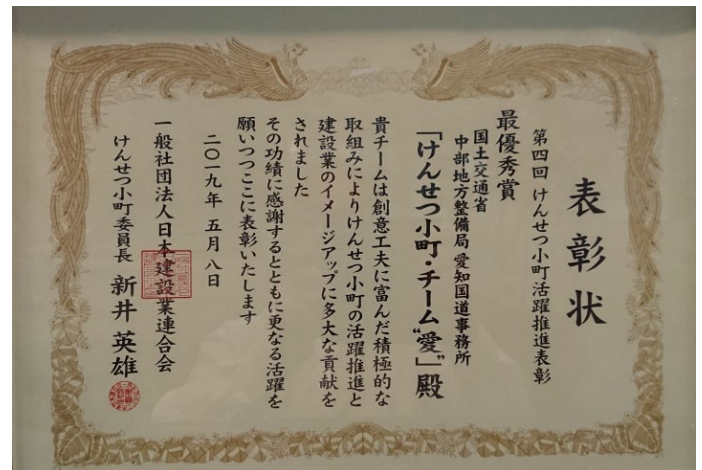 表彰状
第四回 けんせつ小町活躍推進表彰
最優秀賞
国土交通省
中部地方整備局 愛知国道事務所
「けんせつ小町・チーム“愛”」殿
貴チームは創意工夫に富んだ積極的な
取組みによりけんせつ小町の活躍推進と
建設業のイメージアップに多大な貢献を
されました
その功績に感謝するとともに更なる活躍を
願いつつここに表彰いたします
二〇一九年 五月八日
一般社団法人日本建設業連合会
けんせつ小町委員長 新井 英雄